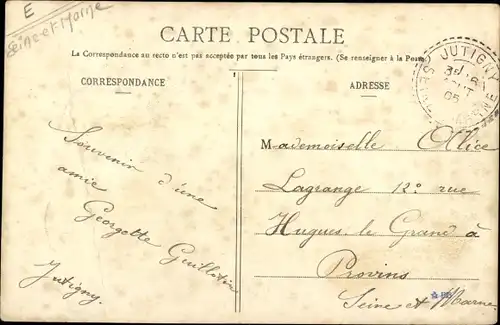 E
Seine-et-Marne
CARTE POSTALE
La Correspondance au recto n'est pas acceptée par tous les Pays étrangers. (Se renseigner à la Poste)
CORRESPONDANCE
ADRESSE
JUTIGNY
SEINE ET MARNE
Souvenir d'une
amie
Georgette
Jutigny.
Mademoiselle Alice
Lagrange 12° rue
Hugues le Grand à
Provins
Seine et Marne